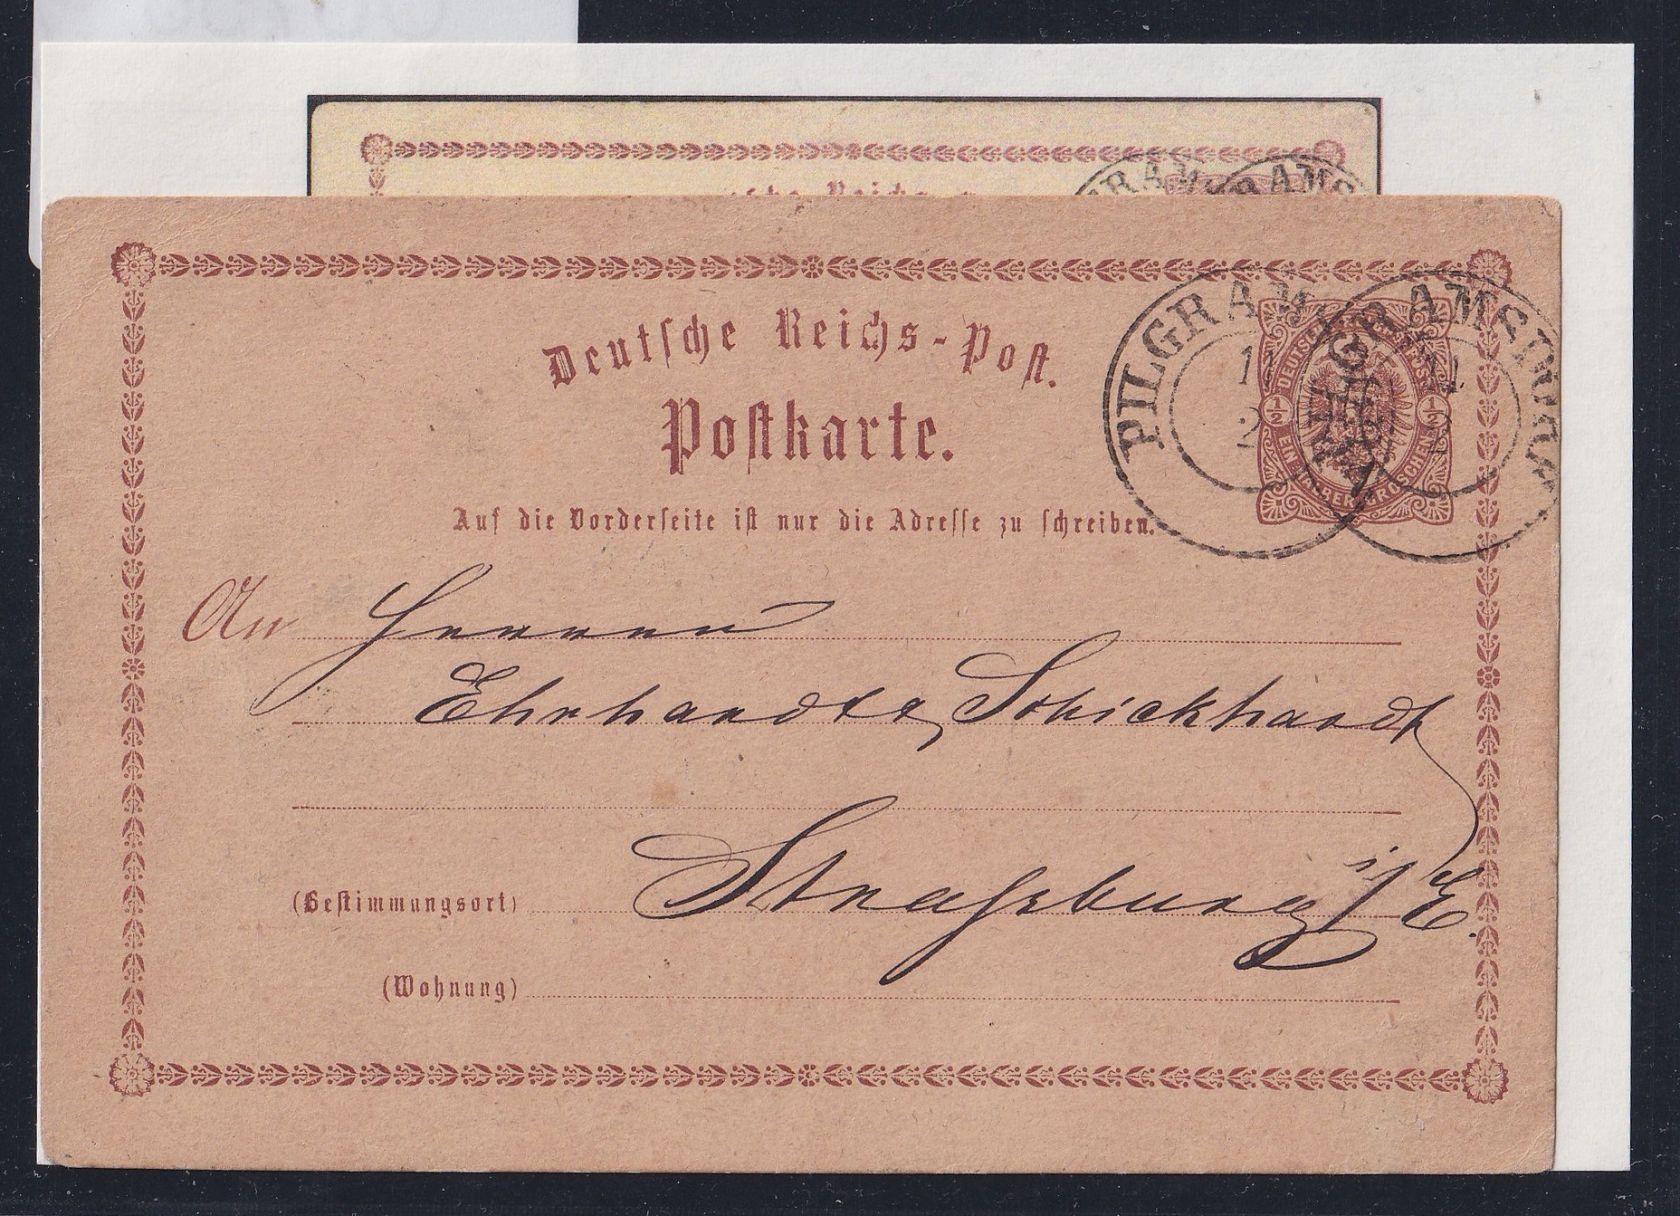 Deutsche Reichs-Post.
Postkarte.
Auf die Vorderseite ist nur die Adresse zu schreiben.
PILGRAM
11
2
PILGRAMS
11
2
DEUTSCHE
1/2
1/2
EIN HALBER GROSCHEN
An Herren
Ehrhardt & Schickhardt
(Bestimmungsort) Straßburg i/E.
(Wohnung)